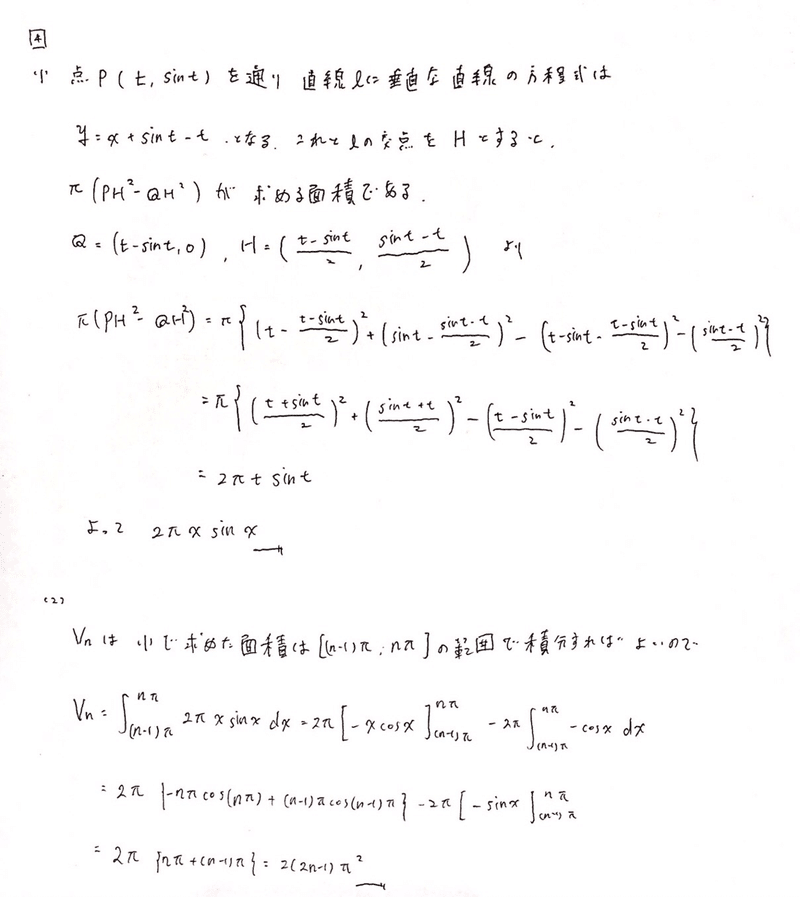 4
(1) 点P(t, sint)を通り直線lに垂直な直線の方程式は
y=x+sint-t となる. これとlの交点をHとすると,
π(PH²-QH²)が求める面積である.
Q=(t-sint,0), H=((t-sint)/2, (sint-t)/2) より
π(PH²-QH²)=π{(t-(t-sint)/2)²+(sint-(sint-t)/2)²-(t-sint-(t-sint)/2)²-((sint-t)/2)²}
=π{((t+sint)/2)²+((sint+t)/2)²-((t-sint)/2)²-((sint-t)/2)²}
=2πt sint
よって 2πx sinx
(2)
Vnは(1)で求めた面積は[(n-1)π, nπ]の範囲で積分すればよいので
Vn=∫_{(n-1)π}^{nπ} 2πx sinx dx=2π[-xcosx]_{(n-1)π}^{nπ}-2π∫_{(n-1)π}^{nπ}-cosx dx
=2π{-nπcos(nπ)+(n-1)πcos(n-1)π}-2π[-sinx]_{(n-1)π}^{nπ}
=2π{nπ+(n-1)π}=2(2n-1)π²